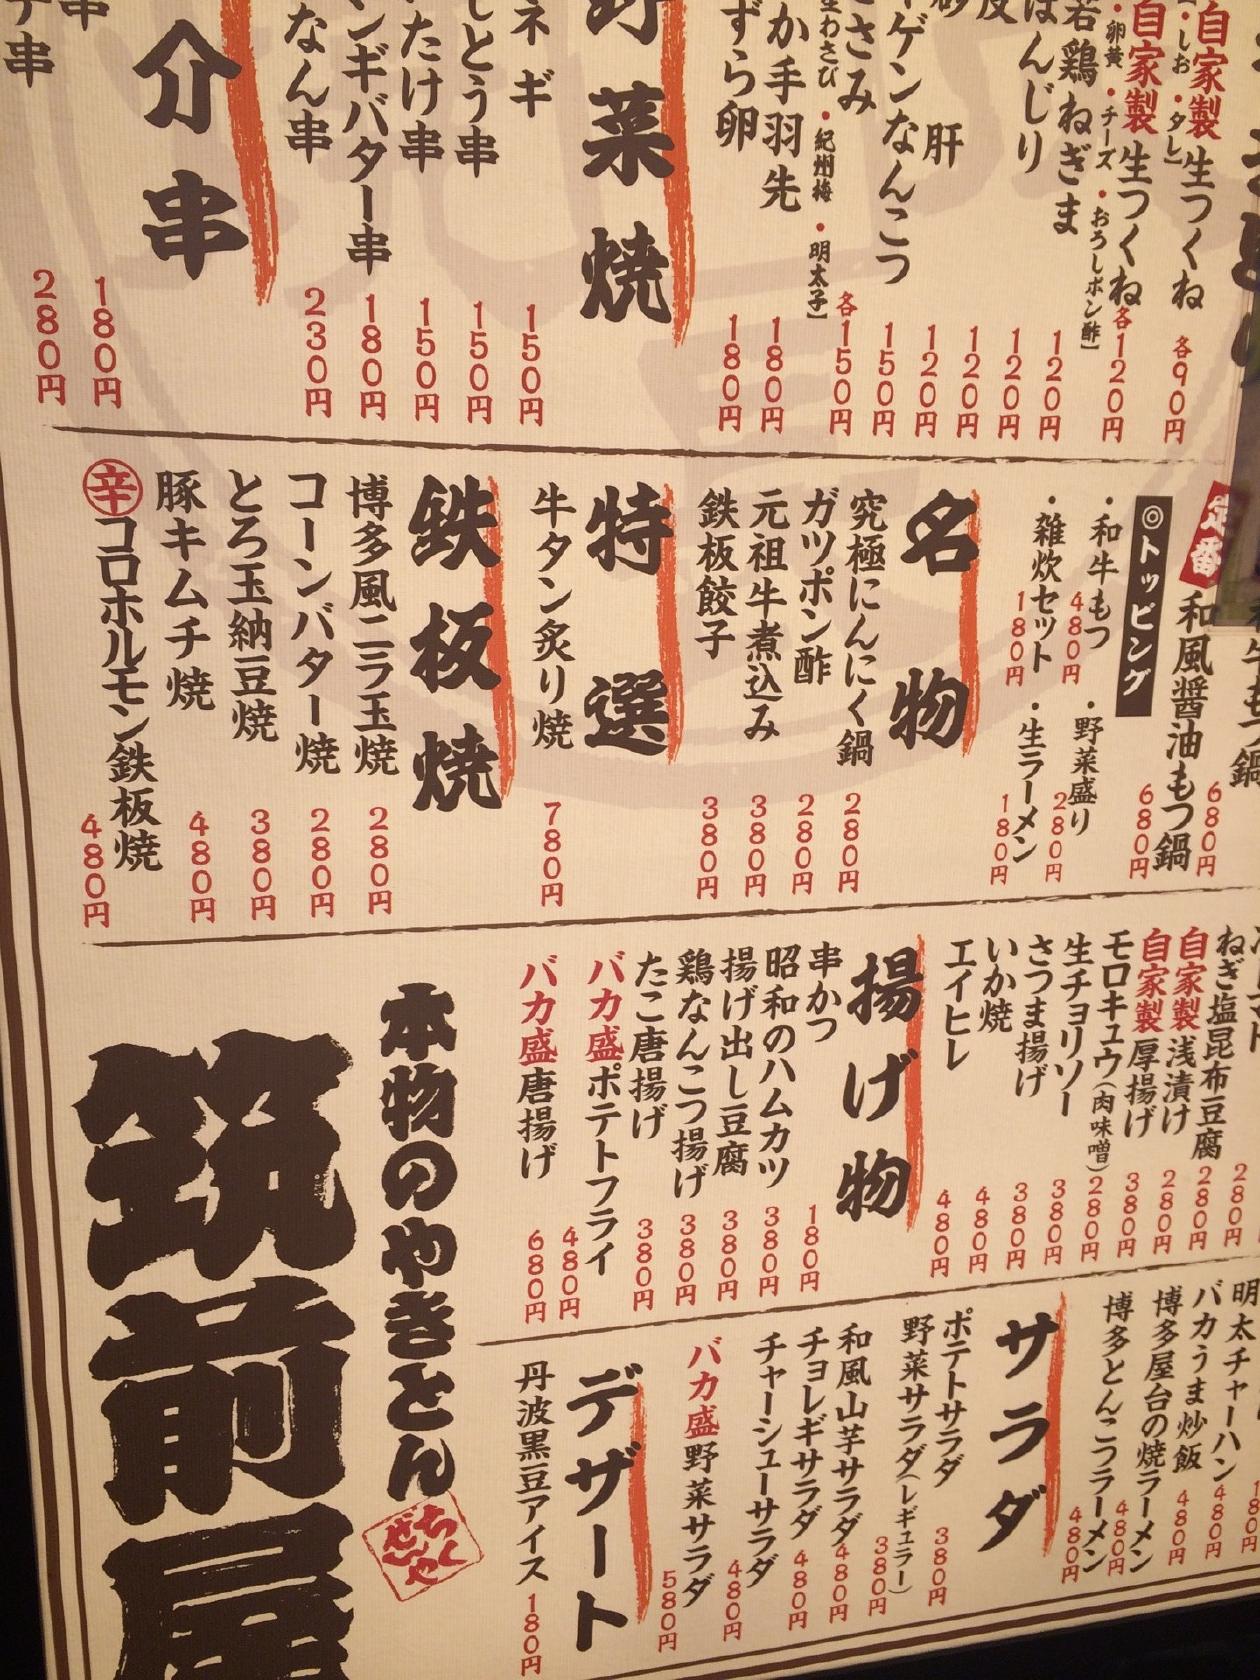 自家製 生つくね 各90円
・しお ・タレ】
自家製 生つくね 各120円
・卵黄 ・チーズ ・おろしポン酢】
若鶏ねぎま 120円
ぼんじり 120円
皮 120円
肝 120円
ゲンなんこつ 150円
ささみ 各150円
生わさび ・紀州梅 ・明太子】
か手羽先 180円
ずら卵 180円
野菜焼
ネギ 150円
しとう串 150円
たけ串 150円
ンギバター串 180円
なん串 230円
介串
串 180円
串 280円
鍋 680円
定番 和風醤油もつ鍋 680円
◎トッピング
・和牛もつ 480円 ・野菜盛り 280円
・雑炊セット 180円 ・生ラーメン 180円
名物
究極にんにく鍋 280円
ガツポン酢 280円
元祖牛煮込み 380円
鉄板餃子 380円
特選
牛タン炙り焼 780円
鉄板焼
博多風ニラ玉焼 280円
コーンバター焼 280円
とろ玉納豆焼 380円
豚キムチ焼 480円
辛 コロホルモン鉄板焼 480円
280円
ねぎ塩昆布豆腐 280円
自家製 浅漬け 280円
自家製 厚揚げ 380円
モロキュウ(肉味噌) 280円
生チョリソー 380円
さつま揚げ 380円
いか焼 480円
エイヒレ 480円
揚げ物
串かつ 180円
昭和のハムカツ 380円
揚げ出し豆腐 380円
鶏なんこつ揚げ 380円
たこ唐揚げ 380円
バカ盛ポテトフライ 480円
バカ盛唐揚げ 680円
明太チャーハン 480円
バカうま炒飯 480円
博多屋台の焼ラーメン 480円
博多とんこつラーメン 480円
サラダ
ポテトサラダ 380円
野菜サラダ(レギュラー) 380円
和風山芋サラダ 480円
チョレギサラダ 480円
チャーシューサラダ 480円
バカ盛 野菜サラダ 580円
デザート
丹波黒豆アイス 180円
本物のやきとん
ちくぜんや
筑前屋